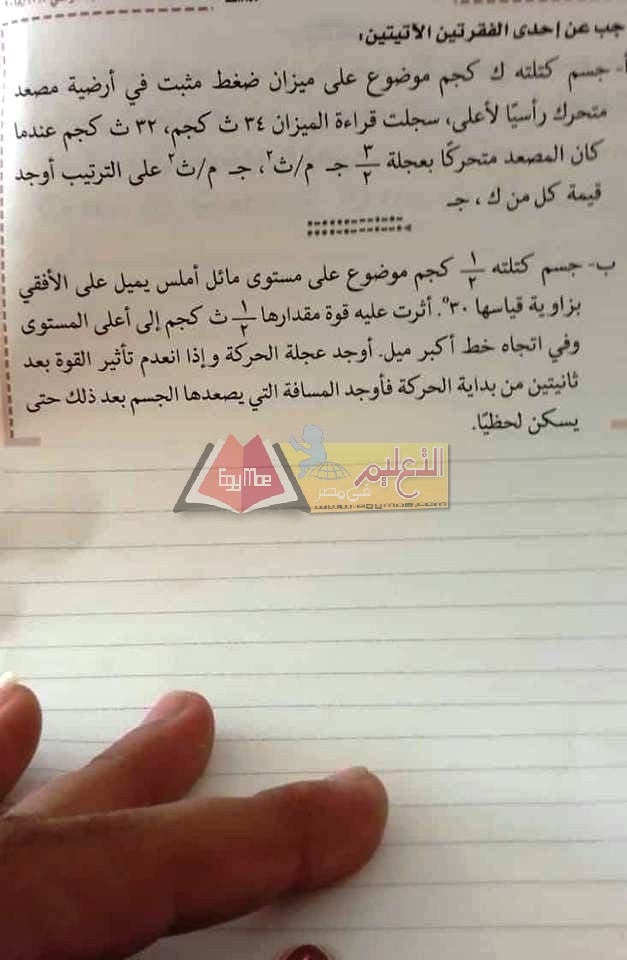 جب عن إحدى الفقرتين الآتيتين:
أ- جسم كتلته ك كجم موضوع على ميزان ضغط مثبت في أرضية مصعد
متحرك رأسيًا لأعلى، سجلت قراءة الميزان ٣٤ ث كجم، ٣٢ ث كجم عندما
كان المصعد متحركًا بعجلة ٣/٢ جـ م/ث٢، جـ م/ث٢ على الترتيب أوجد
قيمة كل من ك، جـ
ب- جسم كتلته ١/٢ كجم موضوع على مستوى مائل أملس يميل على الأفقي
بزاوية قياسها ٣٠°. أثرت عليه قوة مقدارها ١/٢ ث كجم إلى أعلى المستوى
وفي اتجاه خط أكبر ميل. أوجد عجلة الحركة وإذا انعدم تأثير القوة بعد
ثانيتين من بداية الحركة فأوجد المسافة التي يصعدها الجسم بعد ذلك حتى
يسكن لحظيًا.
Egy Moe
التعليم
فى مصر
www.egymoe.com